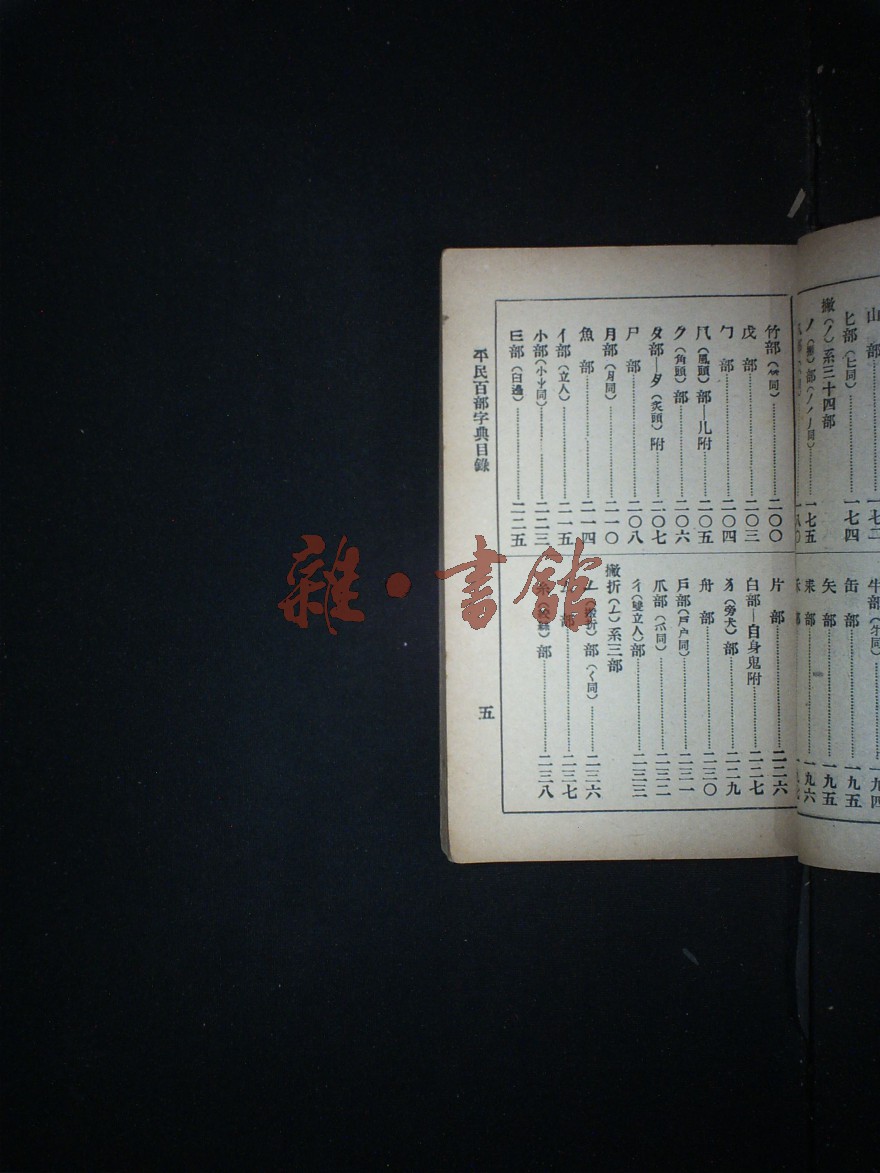 山部……一七二
匕部（匕同）……一七四
撇（丿）系三十四部
丿（撇）部（丿丿同）……一七五
牛部（牜同）……一九四
缶部……一九五
矢部……一九五
耒部……一九六
竹部（𥫗同）……二〇〇
戊部……二〇三
勹部……二〇四
𠘨（風頭）部—儿附……二〇五
𠂊（角頭）部……二〇六
夂部—夕（炙頭）附……二〇七
尸部……二〇八
月部（⺼同）……二一〇
魚部……二一四
亻部（立人）……二一五
小部（⺌⺗同）……二二三
𦥑部（臼邊）……二二五
片部……二二六
白部—自身鬼附……二二七
犭（旁犬）部……二二九
舟部……二三〇
戶部（戸户同）……二三一
爪部（爫同）……二三二
彳（雙立人）部……二三三
撇折（𠃋）系三部
𠃋（撇折）部（㇛同）……二三六
部……二三七
糸部……二三八
平民百部字典目錄
五
雜·書館